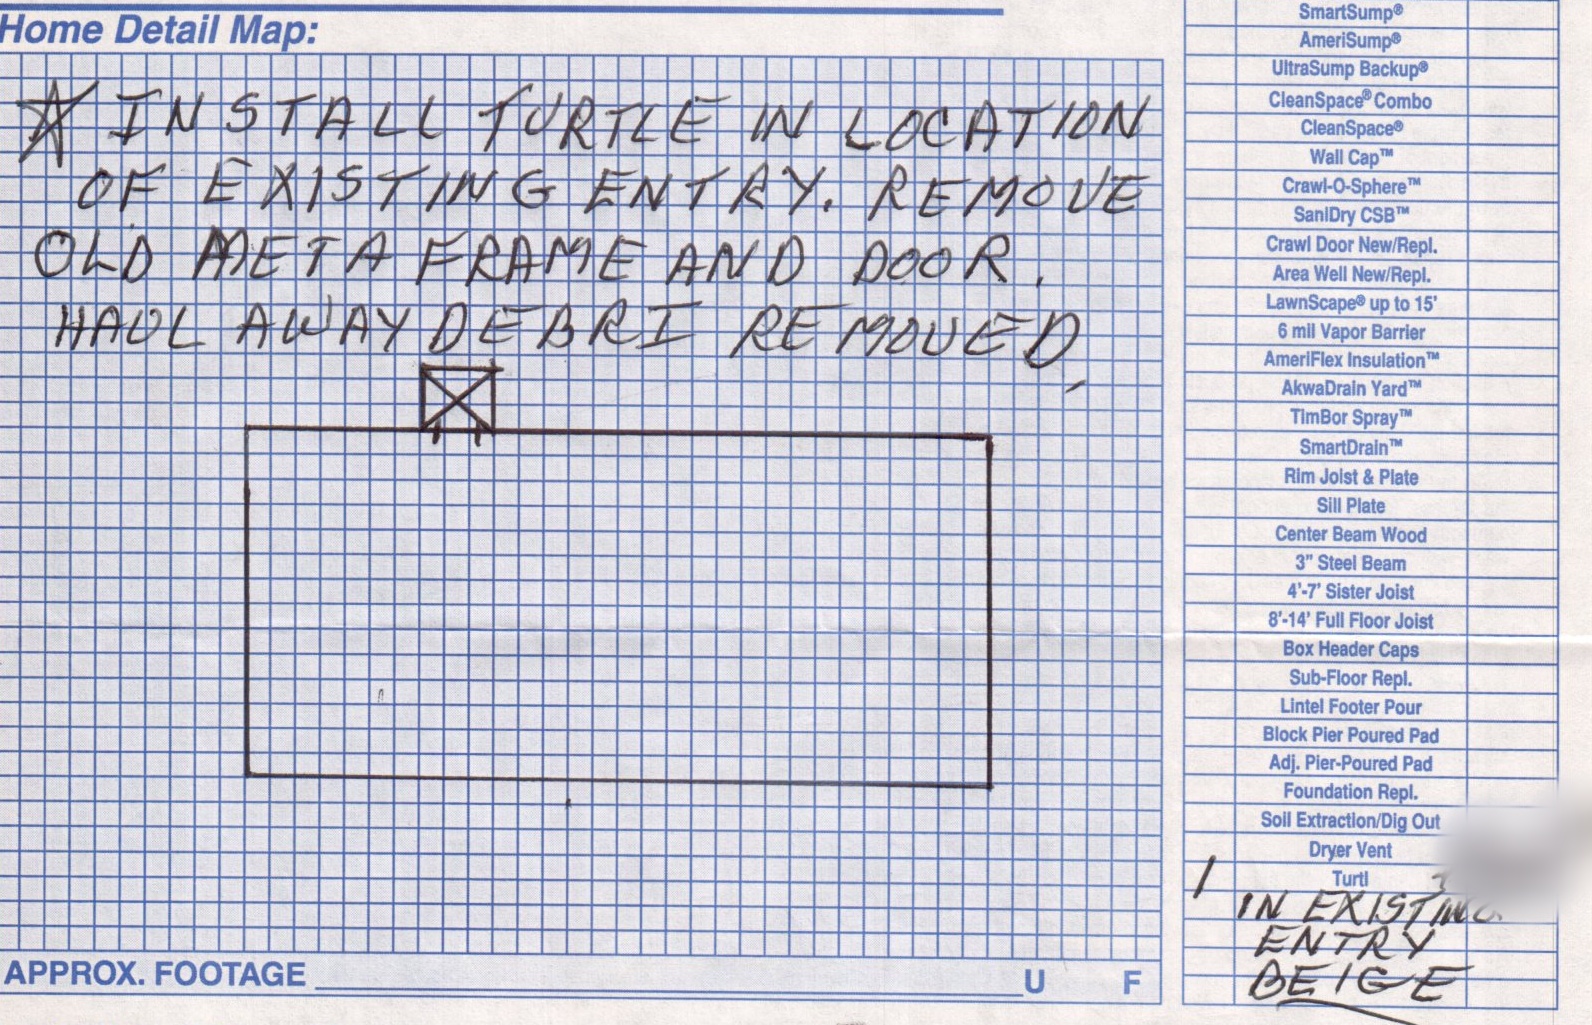 Home Detail Map:
☆ INSTALL TURTLE IN LOCATION
OF EXISTING ENTRY. REMOVE
OLD META FRAME AND DOOR.
HAUL AWAY DEBRI REMOVED.
APPROX. FOOTAGE U F
SmartSump®
AmeriSump®
UltraSump Backup®
CleanSpace® Combo
CleanSpace®
Wall Cap™
Crawl-O-Sphere™
SaniDry CSB™
Crawl Door New/Repl.
Area Well New/Repl.
LawnScape® up to 15'
6 mil Vapor Barrier
AmeriFlex Insulation™
AkwaDrain Yard™
TimBor Spray™
SmartDrain™
Rim Joist & Plate
Sill Plate
Center Beam Wood
3" Steel Beam
4'-7' Sister Joist
8'-14' Full Floor Joist
Box Header Caps
Sub-Floor Repl.
Lintel Footer Pour
Block Pier Poured Pad
Adj. Pier-Poured Pad
Foundation Repl.
Soil Extraction/Dig Out
Dryer Vent
1 Turtl
IN EXISTING
ENTRY
BEIGE